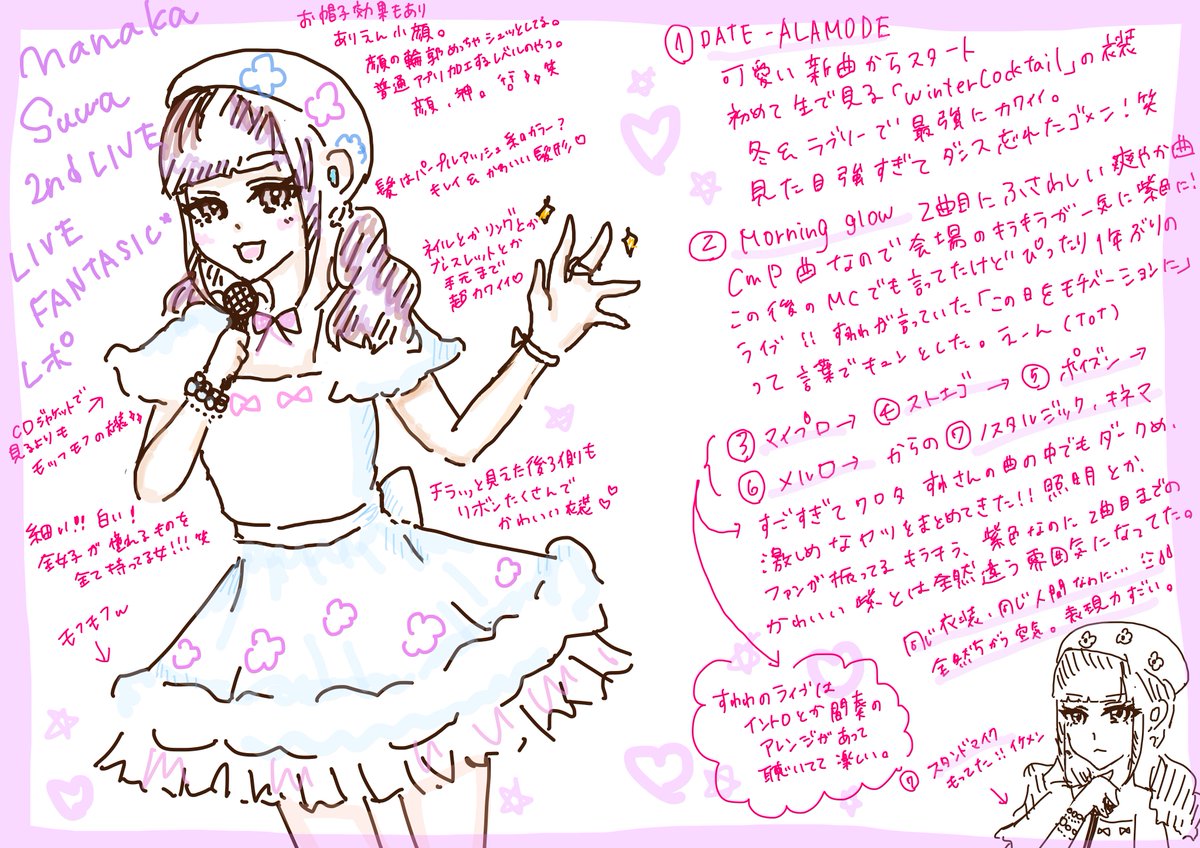 manaka
Suwa
2nd LIVE
LIVE
FANTASIC
レポ
お帽子効果もあり
ありえん小顔。
顔の輪郭めっちゃシュッとしてる。
普通アプリ加工するレベルのやつ。
顔、神。
笑
髪はパープルアッシュ系のカラー?
キレイ&かわいい髪形♡
ネイルとかリングとか
ブレスレットとか
手元まで
超カワイイ♡
CDジャケットで
見るよりも
モッフモフの衣装
細い!!白い!
全女子が憧れるものを
全て持ってる女!!!笑
モフモフw
チラッっと見えた後ろ側も
リボンたくさんで
かわいい衣装♡♡
① DATE-ALAMODE
可愛い新曲からスタート
初めて生で見る「winterCocktail」の衣装
冬&ラブリーで最強にカワイイ。
見た目強すぎてダンス忘れたゴメン!笑
② Morning glow 2曲目にふさわしい爽やか曲
CmP曲なので会場のキラキラが一気に紫色に!
この後のMCでも言ってたけどぴったり1年ぶりの
ライブ!!すわわが言っていた「この日をモチベーションに」
って言葉でキュンとした。えーん(TOT)
③ マイプロ→④ ストエゴ→⑤ ポイズン→
⑥ メルロ→からの⑦ ノスタルジック・キネマ
すごすぎてワロタ すわさんの曲の中でもダークめ、
激しめなヤツをまとめてきた!!照明とか、
ファンが振ってるキラキラ、紫色なのに2曲目までの
かわいい紫とは全然違う雰囲気になってた。
同じ衣装、同じ人間なのに…!!
全然ちがう空気。表現力すごい。
すわわのライブは
イントロとか間奏の
アレンジがあって
聴いてて楽しい。
⑦ スタンドマイク
もってた!!イケメン